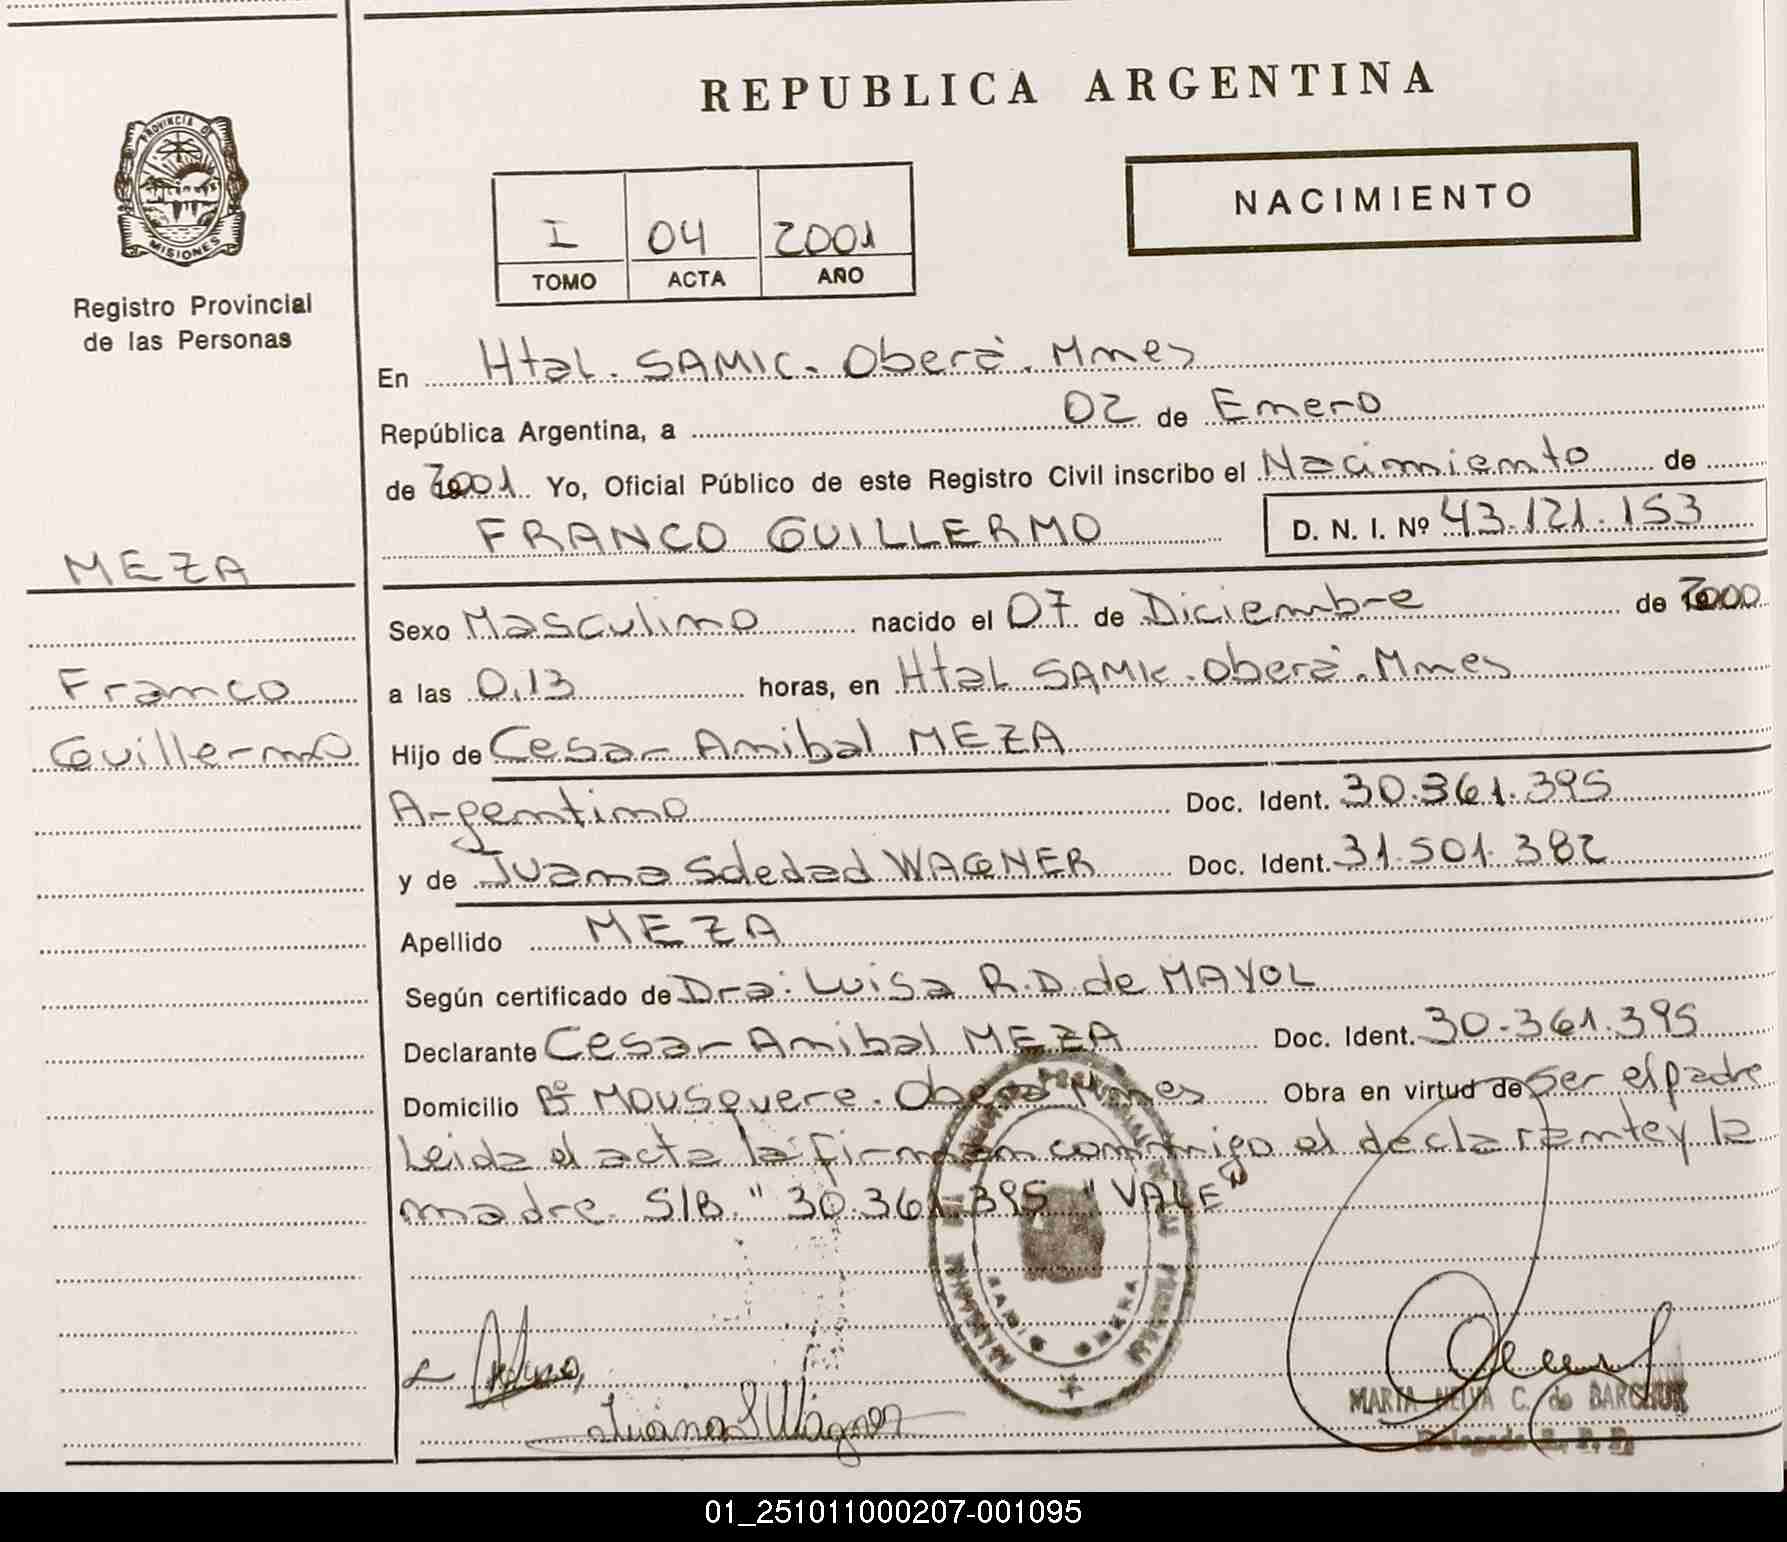 REPUBLICA ARGENTINA
PROVINCIA DE
MISIONES
Registro Provincial
de las Personas
NACIMIENTO
I 04 2001
TOMO ACTA AÑO
En Htal. SAMIC. Oberá. Mnes
República Argentina, a 02 de Enero
de 2001 Yo, Oficial Público de este Registro Civil inscribo el Nacimiento de
FRANCO GUILLERMO D. N. I. Nº 43.121.153
MEZA
Franco
Guillermo
Sexo Masculino nacido el 07 de Diciembre de 2000
a las 0,13 horas, en Htal SAMIC. Oberá. Mnes
Hijo de Cesar Anibal MEZA
Argentino Doc. Ident. 30.361.395
y de Juana Soledad WAGNER Doc. Ident. 31.501.382
Apellido MEZA
Según certificado de Dra: Luisa R.D. de MAYOL
Declarante Cesar Anibal MEZA Doc. Ident. 30.361.395
Domicilio Bº Mousquere. Oberá Mnes Obra en virtud de ser el padre
Leida el acta la firman conmigo el declarante y la
madre. S/B. "30.361.395" "VALE"
Juana S Wagner
OBERA
MARTA NELVA C. de
Delegada R. P. P.
01_251011000207-001095